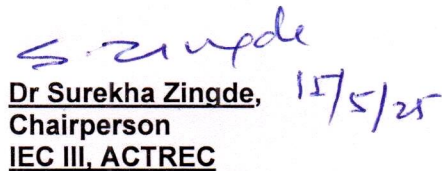 S. Zingde
Dr Surekha Zingde, 15/5/25
Chairperson
IEC III, ACTREC